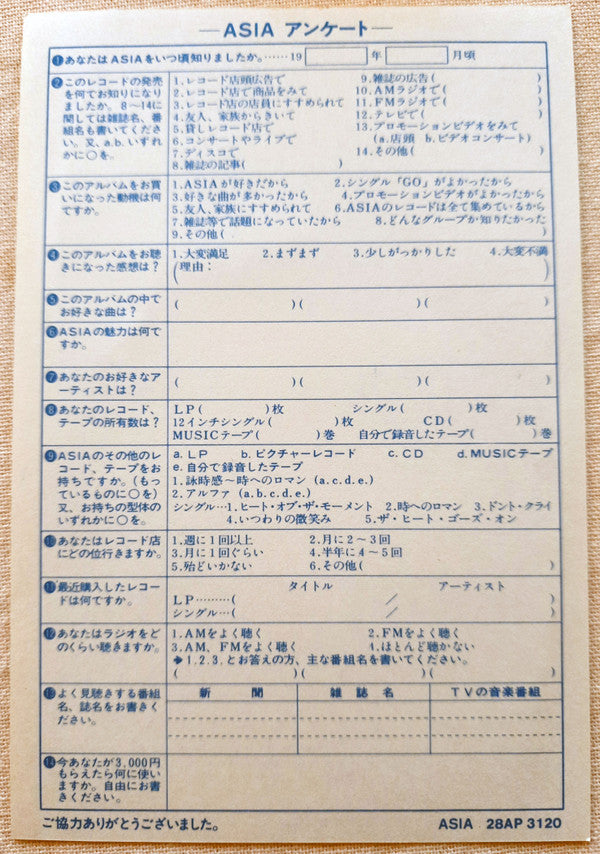 ASIA アンケート
❶あなたはASIAをいつ頃知りましたか。……19 年 月頃
❷このレコードの発売
を何でお知りになり
ましたか。8〜14に
関しては雑誌名、番
組名も書いてくださ
い。又、a.b.いずれ
かに○を。
1.レコード店頭広告で
2.レコード店で商品をみて
3.レコード店の店員にすすめられて
4.友人、家族からきいて
5.貸しレコード店で
6.コンサートやライブで
7.ディスコで
8.雑誌の記事( )
9.雑誌の広告( )
10.AMラジオで( )
11.FMラジオで( )
12.テレビで( )
13.プロモーションビデオをみて
(a.店頭 b.ビデオコンサート)
14.その他( )
❸このアルバムをお買
いになった動機は何
ですか。
1.ASIAが好きだから 2.シングル「GO」がよかったから
3.好きな曲が多かったから 4.プロモーションビデオがよかったから
5.友人、家族にすすめられて 6.ASIAのレコードは全て集めているから
7.雑誌等で話題になっていたから 8.どんなグループか知りたかった
9.その他( )
❹このアルバムをお聴
きになった感想は?
1.大変満足 2.まずまず 3.少しがっかりした 4.大変不満
(理由: )
❺このアルバムの中で
お好きな曲は?
( )( )( )
❻ASIAの魅力は何で
すか。
❼あなたのお好きなア
ーティストは?
( )( )( )
❽あなたのレコード、
テープの所有数は?
LP( )枚 シングル( )枚
12インチシングル( )枚 CD( )枚
MUSICテープ( )巻 自分で録音したテープ( )巻
❾ASIAのその他のレ
コード、テープをお
持ちですか。(もっ
ているものに○を)
又、お持ちの型体の
いずれかに○を。
a.LP b.ピクチャーレコード c.CD d.MUSICテープ
e.自分で録音したテープ
1.詠時感〜時へのロマン(a.c.d.e.)
2.アルファ(a.b.c.d.e.)
シングル…1.ヒート・オブ・ザ・モーメント 2.時へのロマン 3.ドント・クライ
4.いつわりの微笑み 5.ザ・ヒート・ゴーズ・オン
❿あなたはレコード店
にどの位行きますか。
1.週に1回以上 2.月に2〜3回
3.月に1回ぐらい 4.半年に4〜5回
5.殆どいかない 6.その他( )
⓫最近購入したレコー
ドは何ですか。
タイトル アーティスト
LP………( / )
シングル…( / )
⓬あなたはラジオをど
のくらい聴きますか。
1.AMをよく聴く 2.FMをよく聴く
3.AM、FMをよく聴く 4.ほとんど聴かない
➔1.2.3.とお答えの方、主な番組名を書いてください。
( )( )( )
⓭よく見聴きする番組
名、誌名をお書きく
ださい。
新聞 雑誌名 TVの音楽番組
⓮今あなたが3,000円
もらえたら何に使い
ますか。自由にお書
きください。
ご協力ありがとうございました。 ASIA 28AP 3120